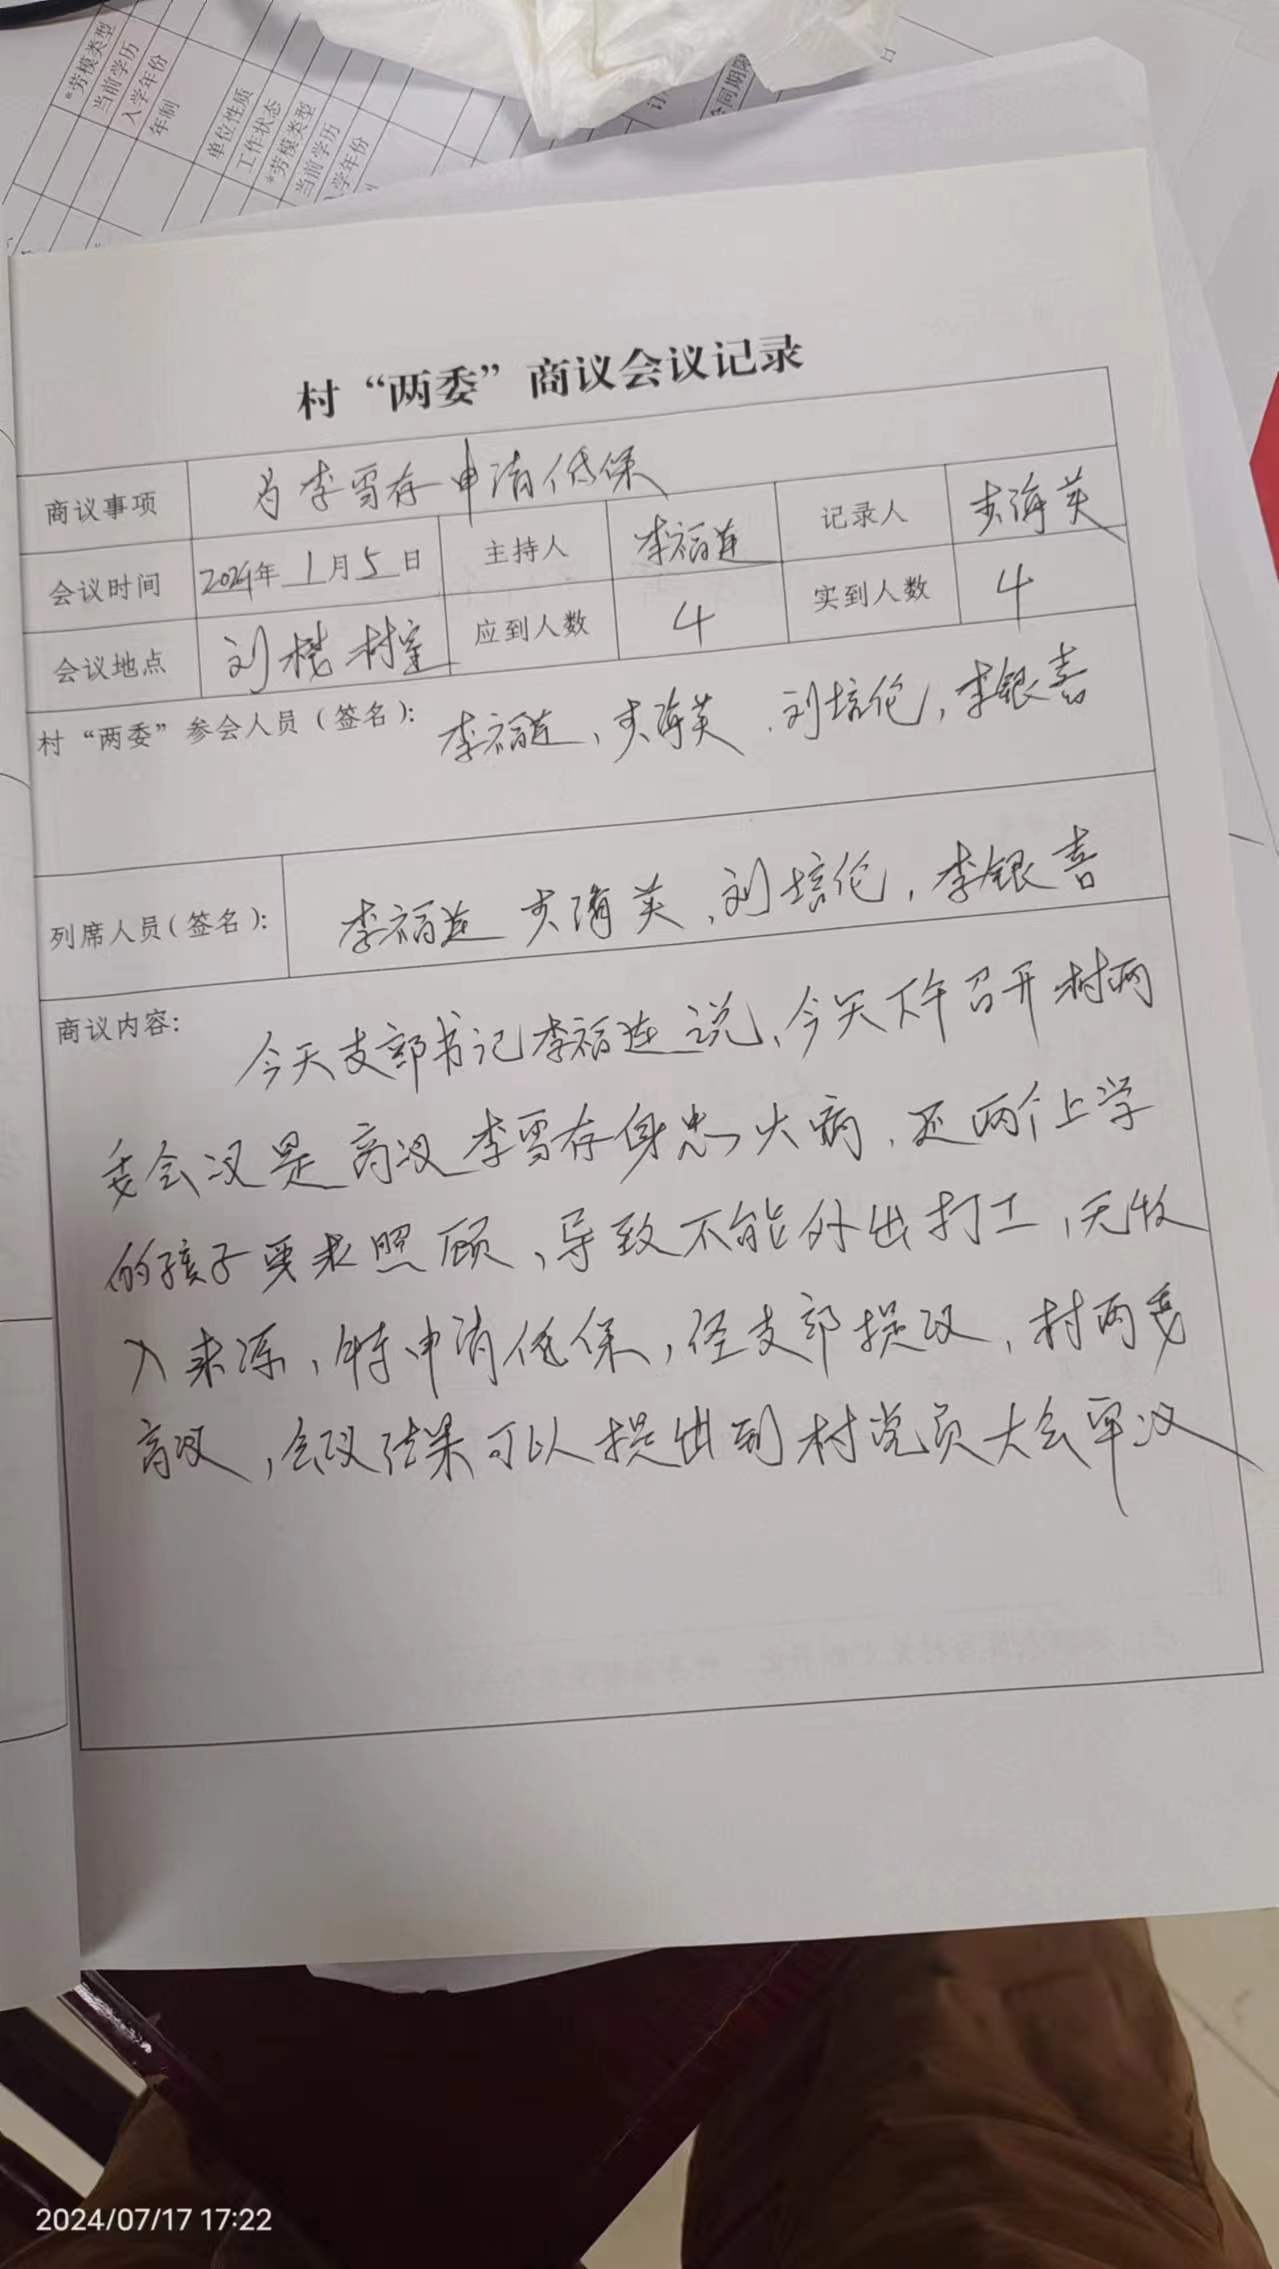 *劳模类型
当前学历
入学年份
年制
单位性质
工作状态
*劳模类型
当前学历
入学年份
合同期限
村“两委”商议会议记录
商议事项 为李雪存申请低保
会议时间 2024年 1月5日 主持人 李福连 记录人 史海英
会议地点 刘楼村室 应到人数 4 实到人数 4
村“两委”参会人员(签名): 李福连、史海英、刘培伦,李银喜
列席人员(签名): 李福连 史海英、刘培伦,李银喜
商议内容: 今天支部书记李福连说、今天下午召开村两
委会议是商议李雪存身患大病,还两个上学
的孩子要求照顾,导致不能外出打工,无收
入来源,特申请低保,经支部提议,村两委
商议,会议结果可以提出到村党员大会审议
2024/07/17 17:22